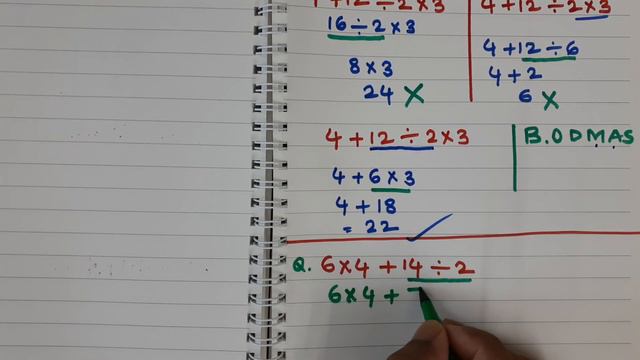 4+12÷2×3
16÷2×3
8×3
24 ×
4+12÷2×3
4+12÷6
4+2
6 ×
4+12÷2×3
4+6×3
4+18
= 22 ✓
B.ODMAS
Q. 6×4+14÷2
6×4+